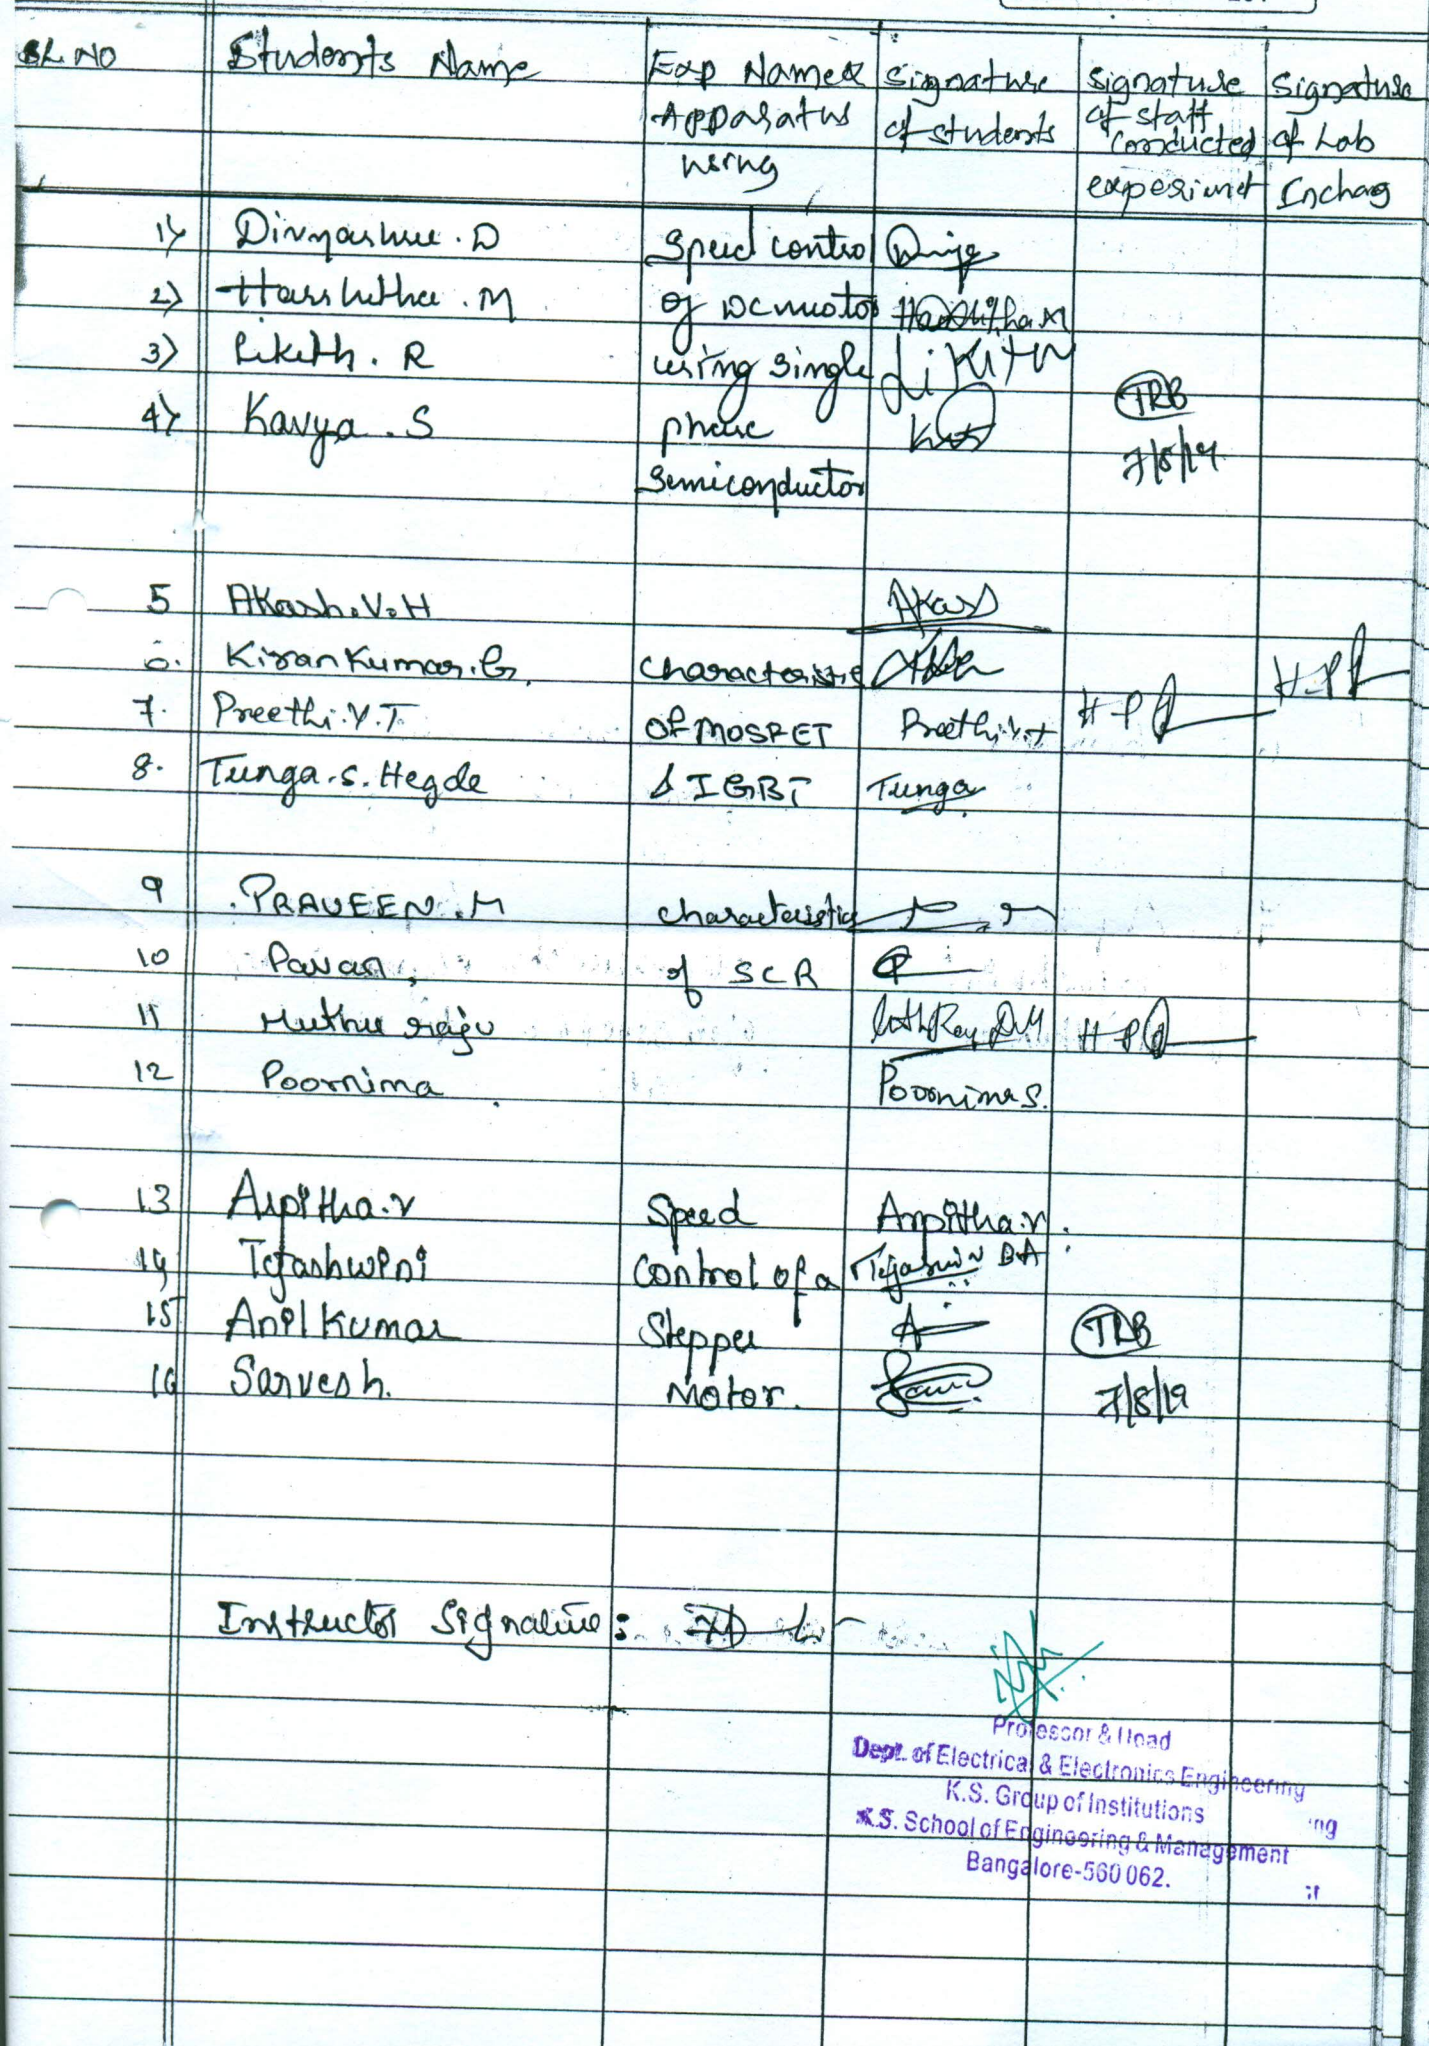 SL NO Students Name Exp Name & Signature Signature Signature
Apparatus of students of staff of Lab
using conducted
experimet Incharg
1) Divyashree . D Speed control
2) Harshitha . M of DC motor Harshitha M
3) Likith . R using single Likith
4) Kavya . S phase TRB
Semiconductor 7/8/19
5 Akash . V . H Akash
6. Kiran Kumar . G. Characteristic
7. Preethi . Y . T OF MOSFET Preethi.Y.T H P
8. Tunga . S . Hegde & IGBT Tunga
9 PRAVEEN . M characteristic
10 Pavan of SCR
11 Muthu raju H P
12 Poornima Poornima S.
13 Arpitha . V Speed Arpitha.V.
14 Tejashwini Control of a Tejaswini B A
15 Anil Kumar Stepper A TRB
16 Sarvesh. Motor. 7/8/19
Instructor Signature :
Professor & Head
Dept. of Electrical & Electronics Engineering
K.S. Group of Institutions
K.S. School of Engineering & Management
Bangalore-560 062.